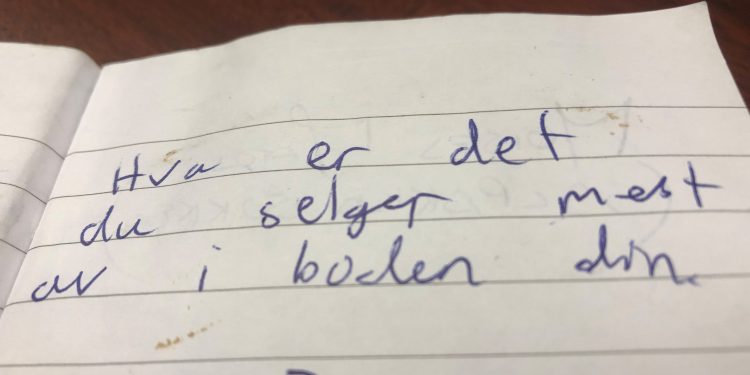 Hva er det
du selger mest
av i boden din.